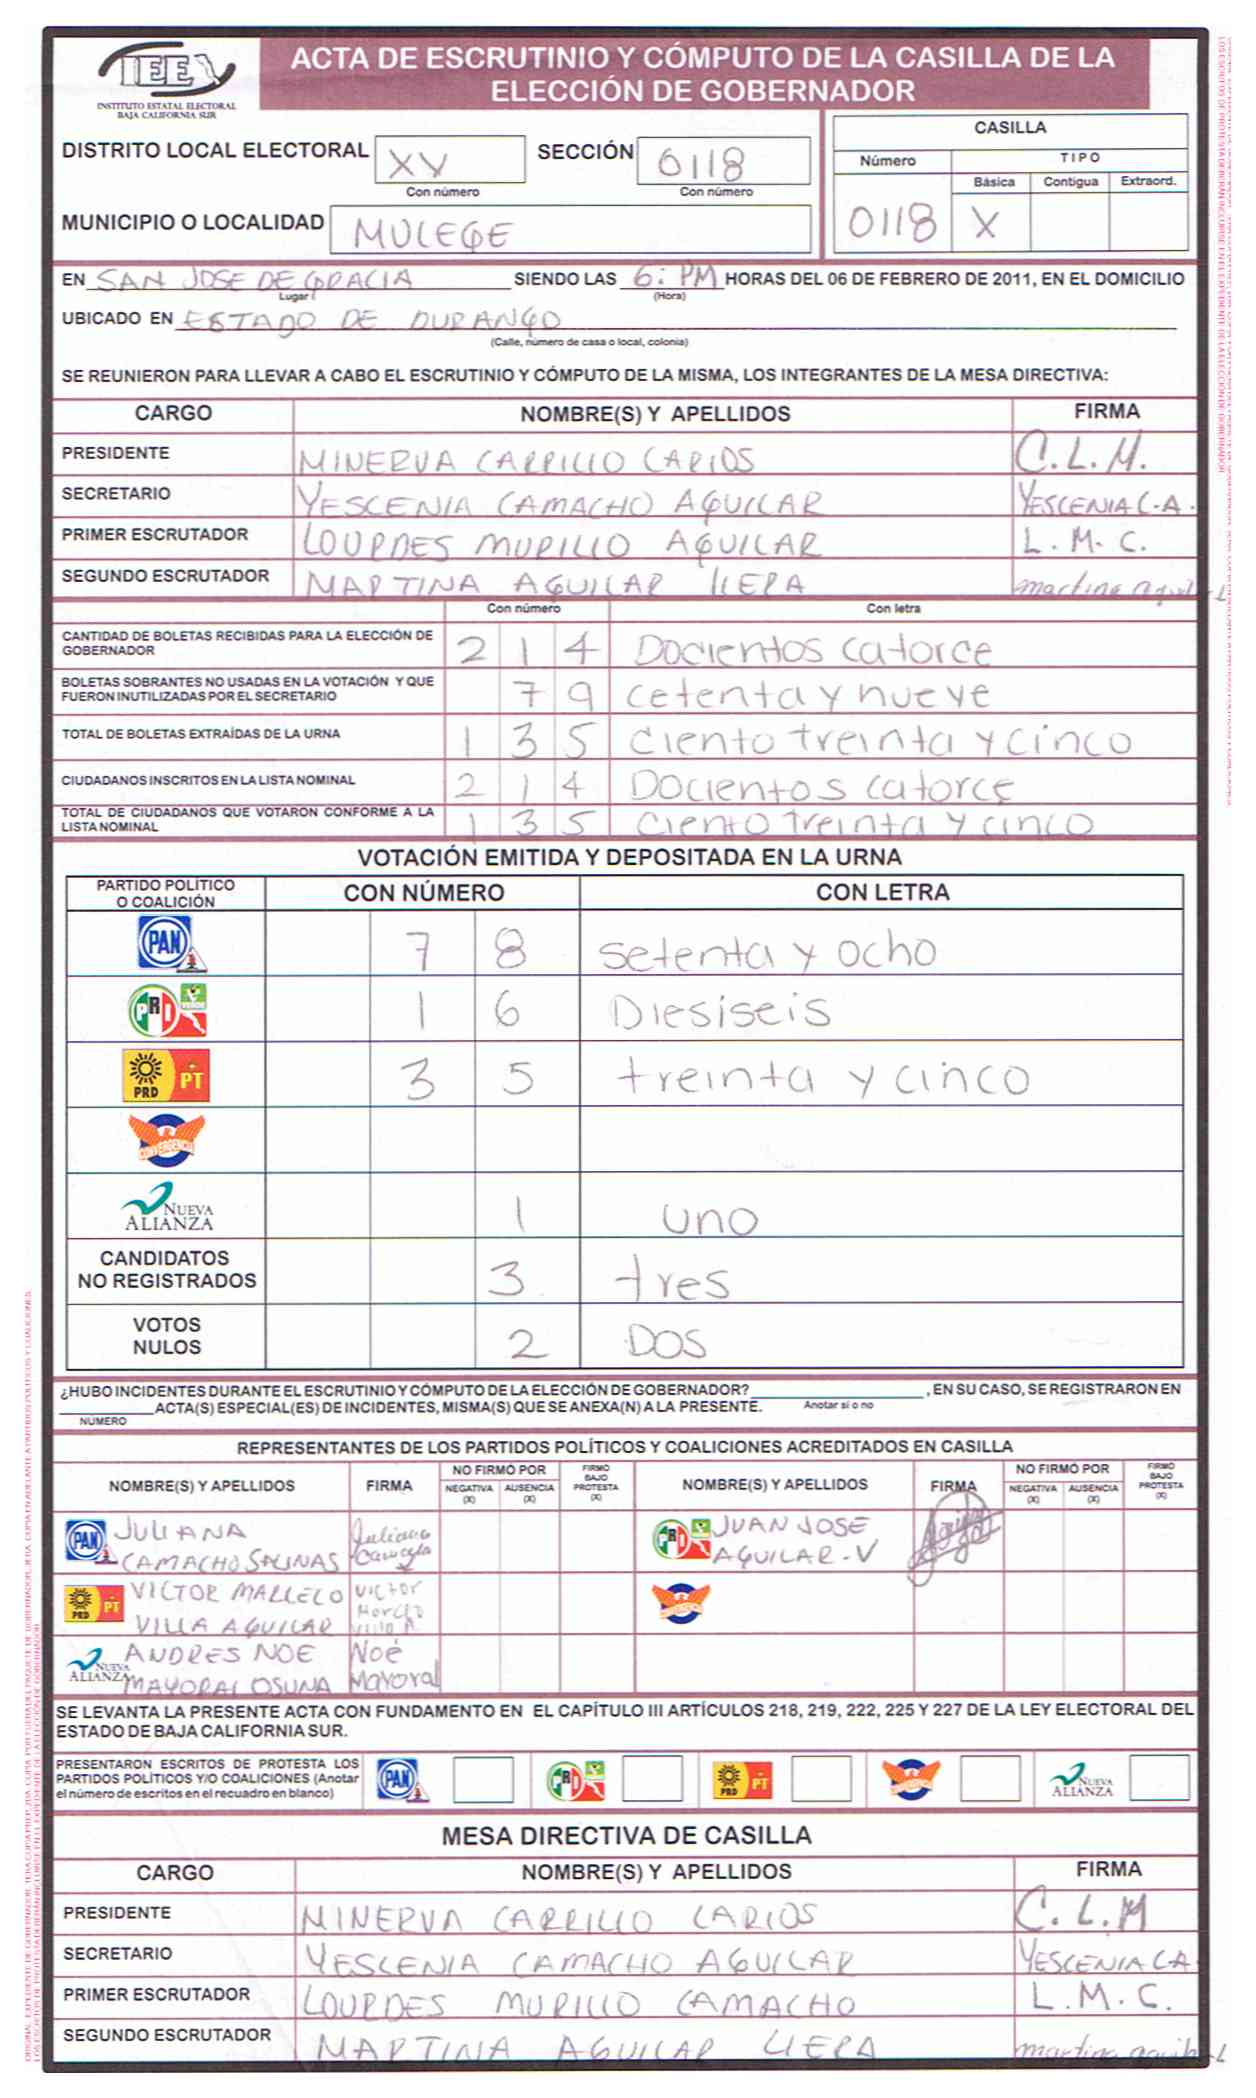 IEE
INSTITUTO ESTATAL ELECTORAL
BAJA CALIFORNIA SUR
ACTA DE ESCRUTINIO Y CÓMPUTO DE LA CASILLA DE LA
ELECCIÓN DE GOBERNADOR
DISTRITO LOCAL ELECTORAL XV SECCIÓN 0118
Con número Con número
MUNICIPIO O LOCALIDAD MULEGE
CASILLA
Número TIPO
Básica Contigua Extraord.
0118 X
EN SAN JOSE DE GRACIA SIENDO LAS 6: PM HORAS DEL 06 DE FEBRERO DE 2011, EN EL DOMICILIO
Lugar (Hora)
UBICADO EN ESTADO DE DURANGO
(Calle, número de casa o local, colonia)
SE REUNIERON PARA LLEVAR A CABO EL ESCRUTINIO Y CÓMPUTO DE LA MISMA, LOS INTEGRANTES DE LA MESA DIRECTIVA:
CARGO NOMBRE(S) Y APELLIDOS FIRMA
PRESIDENTE MINERVA CARRILLO LARIOS C.L.M.
SECRETARIO YESCENIA CAMACHO AGUILAR YESCENIA C.A.
PRIMER ESCRUTADOR LOURDES MURILLO AGUILAR L.M.C.
SEGUNDO ESCRUTADOR MARTINA AGUILAR LIERA martina aguilar L
Con número Con letra
CANTIDAD DE BOLETAS RECIBIDAS PARA LA ELECCIÓN DE
GOBERNADOR 2 1 4 Docientos catorce
BOLETAS SOBRANTES NO USADAS EN LA VOTACIÓN Y QUE
FUERON INUTILIZADAS POR EL SECRETARIO 7 9 cetenta y nueve
TOTAL DE BOLETAS EXTRAÍDAS DE LA URNA 1 3 5 Ciento treinta y cinco
CIUDADANOS INSCRITOS EN LA LISTA NOMINAL 2 1 4 Docientos catorce
TOTAL DE CIUDADANOS QUE VOTARON CONFORME A LA
LISTA NOMINAL 1 3 5 Ciento treinta y cinco
VOTACIÓN EMITIDA Y DEPOSITADA EN LA URNA
PARTIDO POLÍTICO
O COALICIÓN CON NÚMERO CON LETRA
PAN 7 8 setenta y ocho
PRI VERDE 1 6 Diesiseis
PRD PT 3 5 treinta y cinco
CONVERGENCIA
NUEVA
ALIANZA 1 uno
CANDIDATOS
NO REGISTRADOS 3 tres
VOTOS
NULOS 2 DOS
¿HUBO INCIDENTES DURANTE EL ESCRUTINIO Y CÓMPUTO DE LA ELECCIÓN DE GOBERNADOR? , EN SU CASO, SE REGISTRARON EN
ACTA(S) ESPECIAL(ES) DE INCIDENTES, MISMA(S) QUE SE ANEXA(N) A LA PRESENTE. Anotar sí o no
NÚMERO
REPRESENTANTES DE LOS PARTIDOS POLÍTICOS Y COALICIONES ACREDITADOS EN CASILLA
NOMBRE(S) Y APELLIDOS FIRMA NO FIRMÓ POR NEGATIVA (X) AUSENCIA (X) FIRMÓ BAJO PROTESTA (X) NOMBRE(S) Y APELLIDOS FIRMA NO FIRMÓ POR NEGATIVA (X) AUSENCIA (X) FIRMÓ BAJO PROTESTA (X)
PAN JULIANA Juliana PRI JUAN JOSE
CAMACHO SALINAS Camacho AGUILAR-V
PRD PT VICTOR MARCELO VICTOR CONVERGENCIA
VILLA AGUILAR Marcelo Villa A.
NUEVA ALIANZA ANDRES NOE Noé
MAYORAL OSUNA Mayoral
SE LEVANTA LA PRESENTE ACTA CON FUNDAMENTO EN EL CAPÍTULO III ARTÍCULOS 218, 219, 222, 225 Y 227 DE LA LEY ELECTORAL DEL
ESTADO DE BAJA CALIFORNIA SUR.
PRESENTARON ESCRITOS DE PROTESTA LOS
PARTIDOS POLÍTICOS Y/O COALICIONES (Anotar
el número de escritos en el recuadro en blanco) PAN PRI PRD PT CONVERGENCIA NUEVA ALIANZA
MESA DIRECTIVA DE CASILLA
CARGO NOMBRE(S) Y APELLIDOS FIRMA
PRESIDENTE MINERVA CARRILLO LARIOS C.L.M
SECRETARIO YESCENIA CAMACHO AGUILAR YESCENIA C.A.
PRIMER ESCRUTADOR LOURDES MURILLO CAMACHO L.M.C.
SEGUNDO ESCRUTADOR MARTINA AGUILAR LIERA martina aguilar L